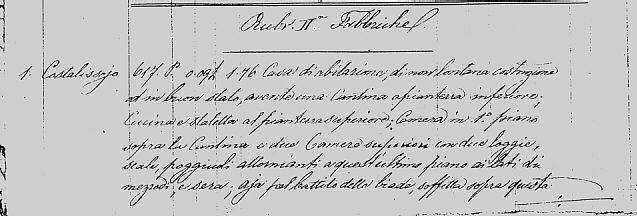 Rubr. II.ª Fabbriche.
1. Costalissojo 617 P. 0.09. 1.76 Casa di abitazione, di non lontana costruzione
ed in buon stato, avente una Cantina a pianterra inferiore,
Cucina e stalletta al pianterra superiore, Camera in 1º piano
sopra la Cantina e due Camere superiori con due loggie,
scale, poggiuoli allornianti a quest'ultimo piano ai lati di
mezzodì, e sera; aja pel battito delle biade, soffitta sopra questa